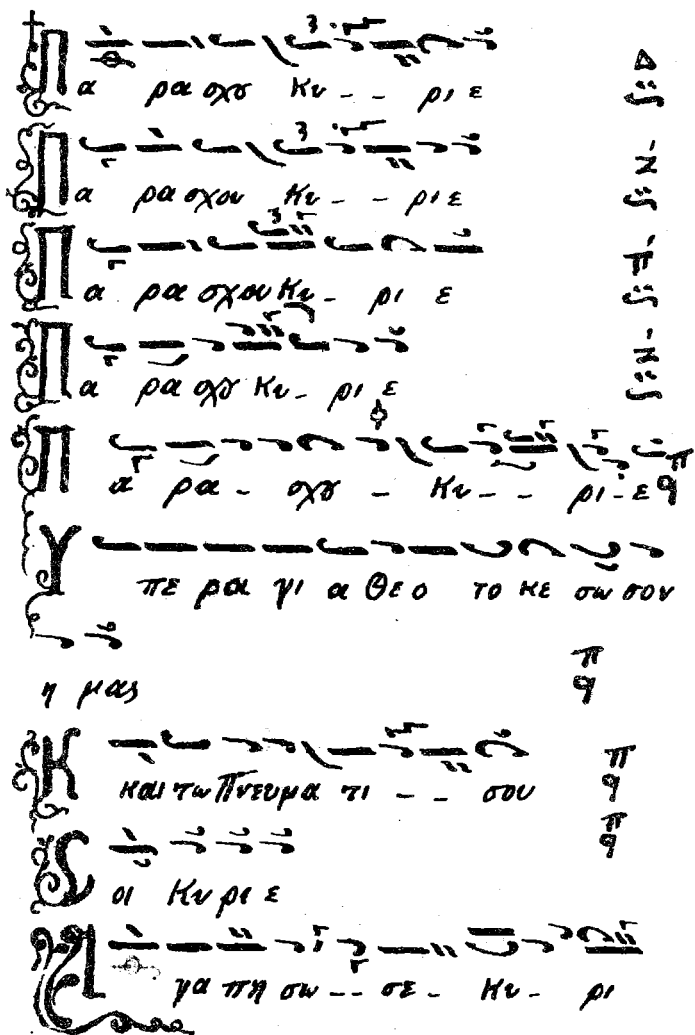 Πα ρα σχȣ Κυ - - ρι ε
Πα ρα σχου Κυ - - - ρι ε
Πα ρα σχου Κυ - ρι ε
Πα ρα σχȣ Κυ - ρι ε
Πα ρα - σχȣ - Κυ - - ρι - ε
Υ πε ρα γι α Θε ο το κε σω σον
η μας
Κ και τω Πνευμα τι - - σου
Σοι Κυ ρι ε
Α γα πη σω - - σε - Κυ - ρι